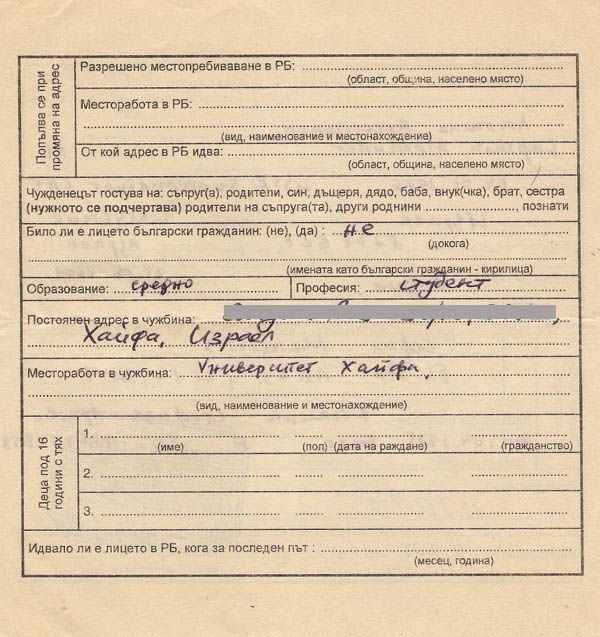 Попълва се при промяна на адрес
Разрешено местопребиваване в РБ:
(област, община, населено място)
Месторабота в РБ:
(вид, наименование и местонахождение)
От кой адрес в РБ идва:
(област, община, населено място)
Чужденецът гостува на: съпруг(а), родители, син, дъщеря, дядо, баба, внук(чка), брат, сестра
(нужкото се подчертава) родители на съпруга(та), други роднини ............ познати
Било ли е лицето български гражданин: (не), (да) : не
(докога)
(имената като български гражданин - кирилица)
Образование: средно Професия: студент
Постоянен адрес в чужбина:
Хайфа, Израел
Месторабота в чужбина: Университет Хайфа,
(вид, наименование и местонахождение)
Деца под 16 години с тях
1.
(име) (пол) (дата на раждане) (гражданство)
2.
3.
Идвало ли е лицето в РБ, кога за последен път :
(месец, година)